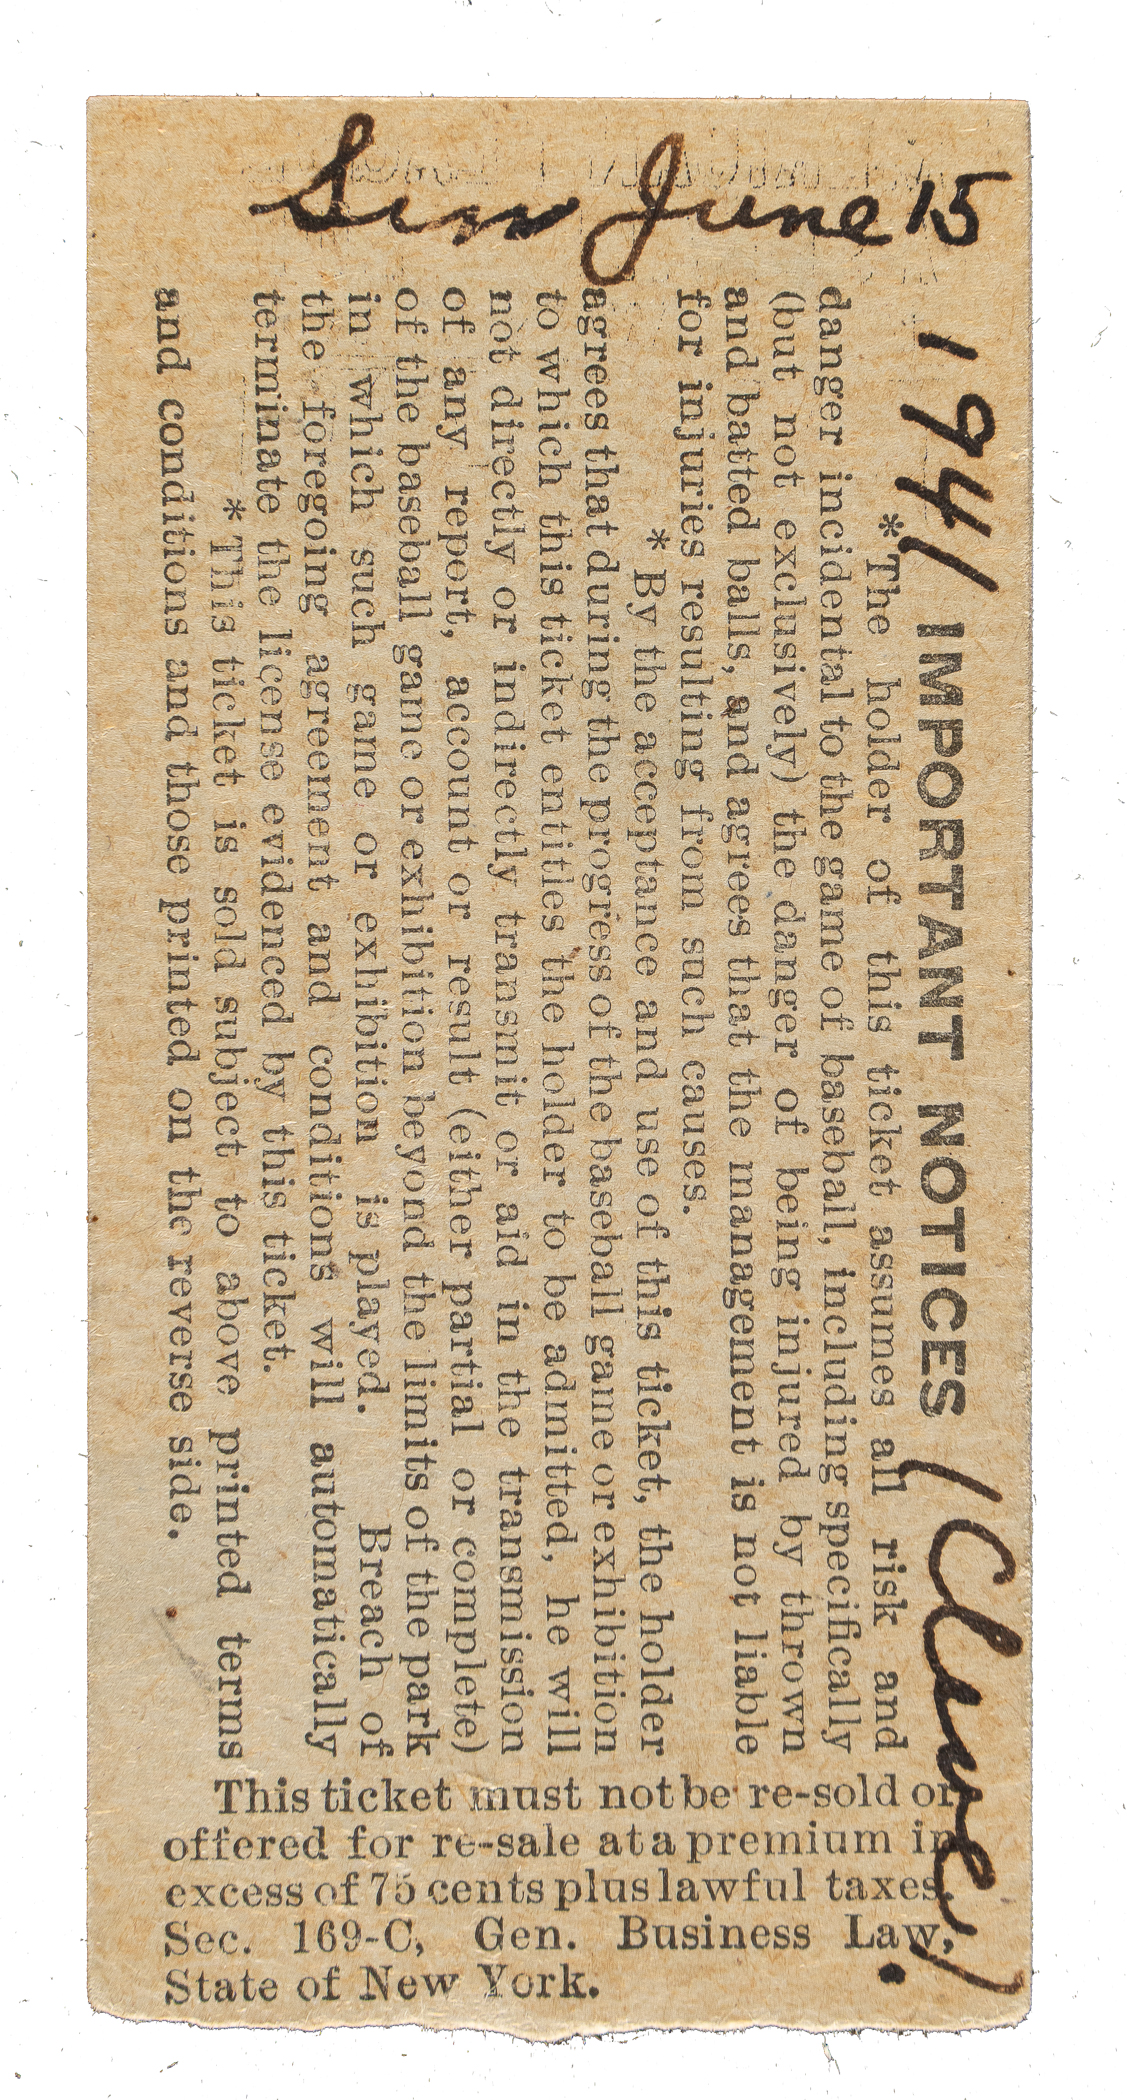 Sun June 15
1941 IMPORTANT NOTICES (Cleve)
*The holder of this ticket assumes all risk and
danger incidental to the game of baseball, including specifically
(but not exclusively) the danger of being injured by thrown
and batted balls, and agrees that the management is not liable
for injuries resulting from such causes.
*By the acceptance and use of this ticket, the holder
agrees that during the progress of the baseball game or exhibition
to which this ticket entitles the holder to be admitted, he will
not directly or indirectly transmit or aid in the transmission
of any report, account or result (either partial or complete)
of the baseball game or exhibition beyond the limits of the park
in which such game or exhibition is played. Breach of
the foregoing agreement and conditions will automatically
terminate the license evidenced by this ticket.
*This ticket is sold subject to above printed terms
and conditions and those printed on the reverse side.
This ticket must not be re-sold or
offered for re-sale at a premium in
excess of 75 cents plus lawful taxes.
Sec. 169-C, Gen. Business Law,
State of New York.